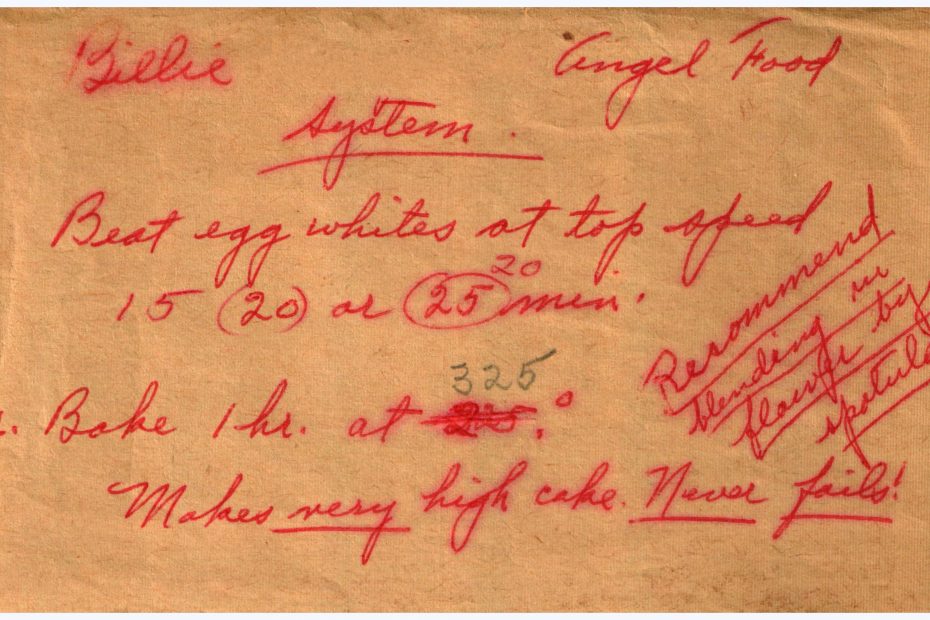 Billie
Angel Food
System.
Beat egg whites at top speed
20
15 (20) or 25 min.
325
Bake 1 hr. at °
Makes very high cake. Never fails!
Recommend
blending in
flour by
spatula